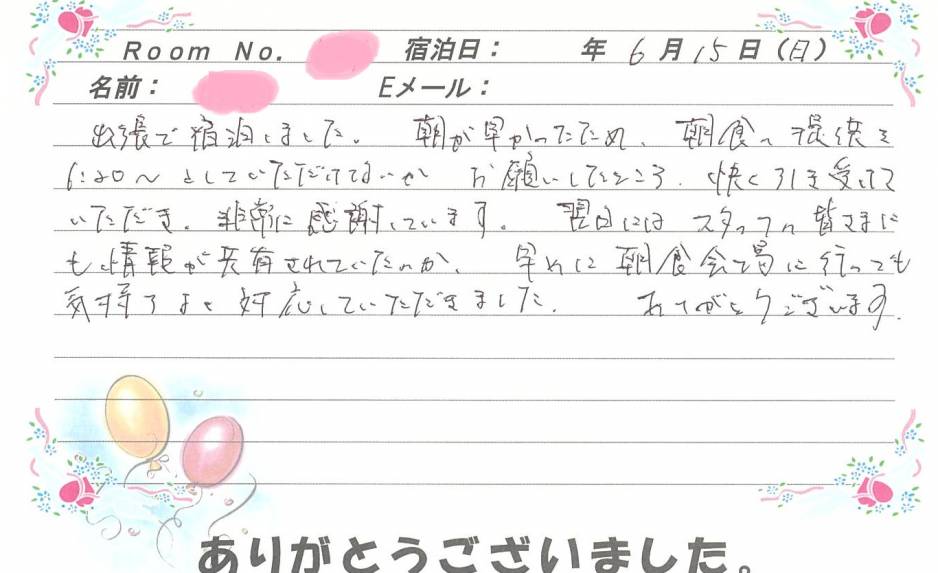 Room No. 宿泊日： 年 6月 15日（日）
名前： Eメール：
出張で宿泊しました。 朝が早かったため、朝食の提供を
6:20～ としていただけないか お願いしたところ、快く引き受けて
いただき、非常に感謝しています。 翌日には スタッフの皆さまに
も情報が共有されていたのか、 早めに朝食会場に行っても
気持ちよく対応していただきました。 ありがとうございます。
ありがとうございました。